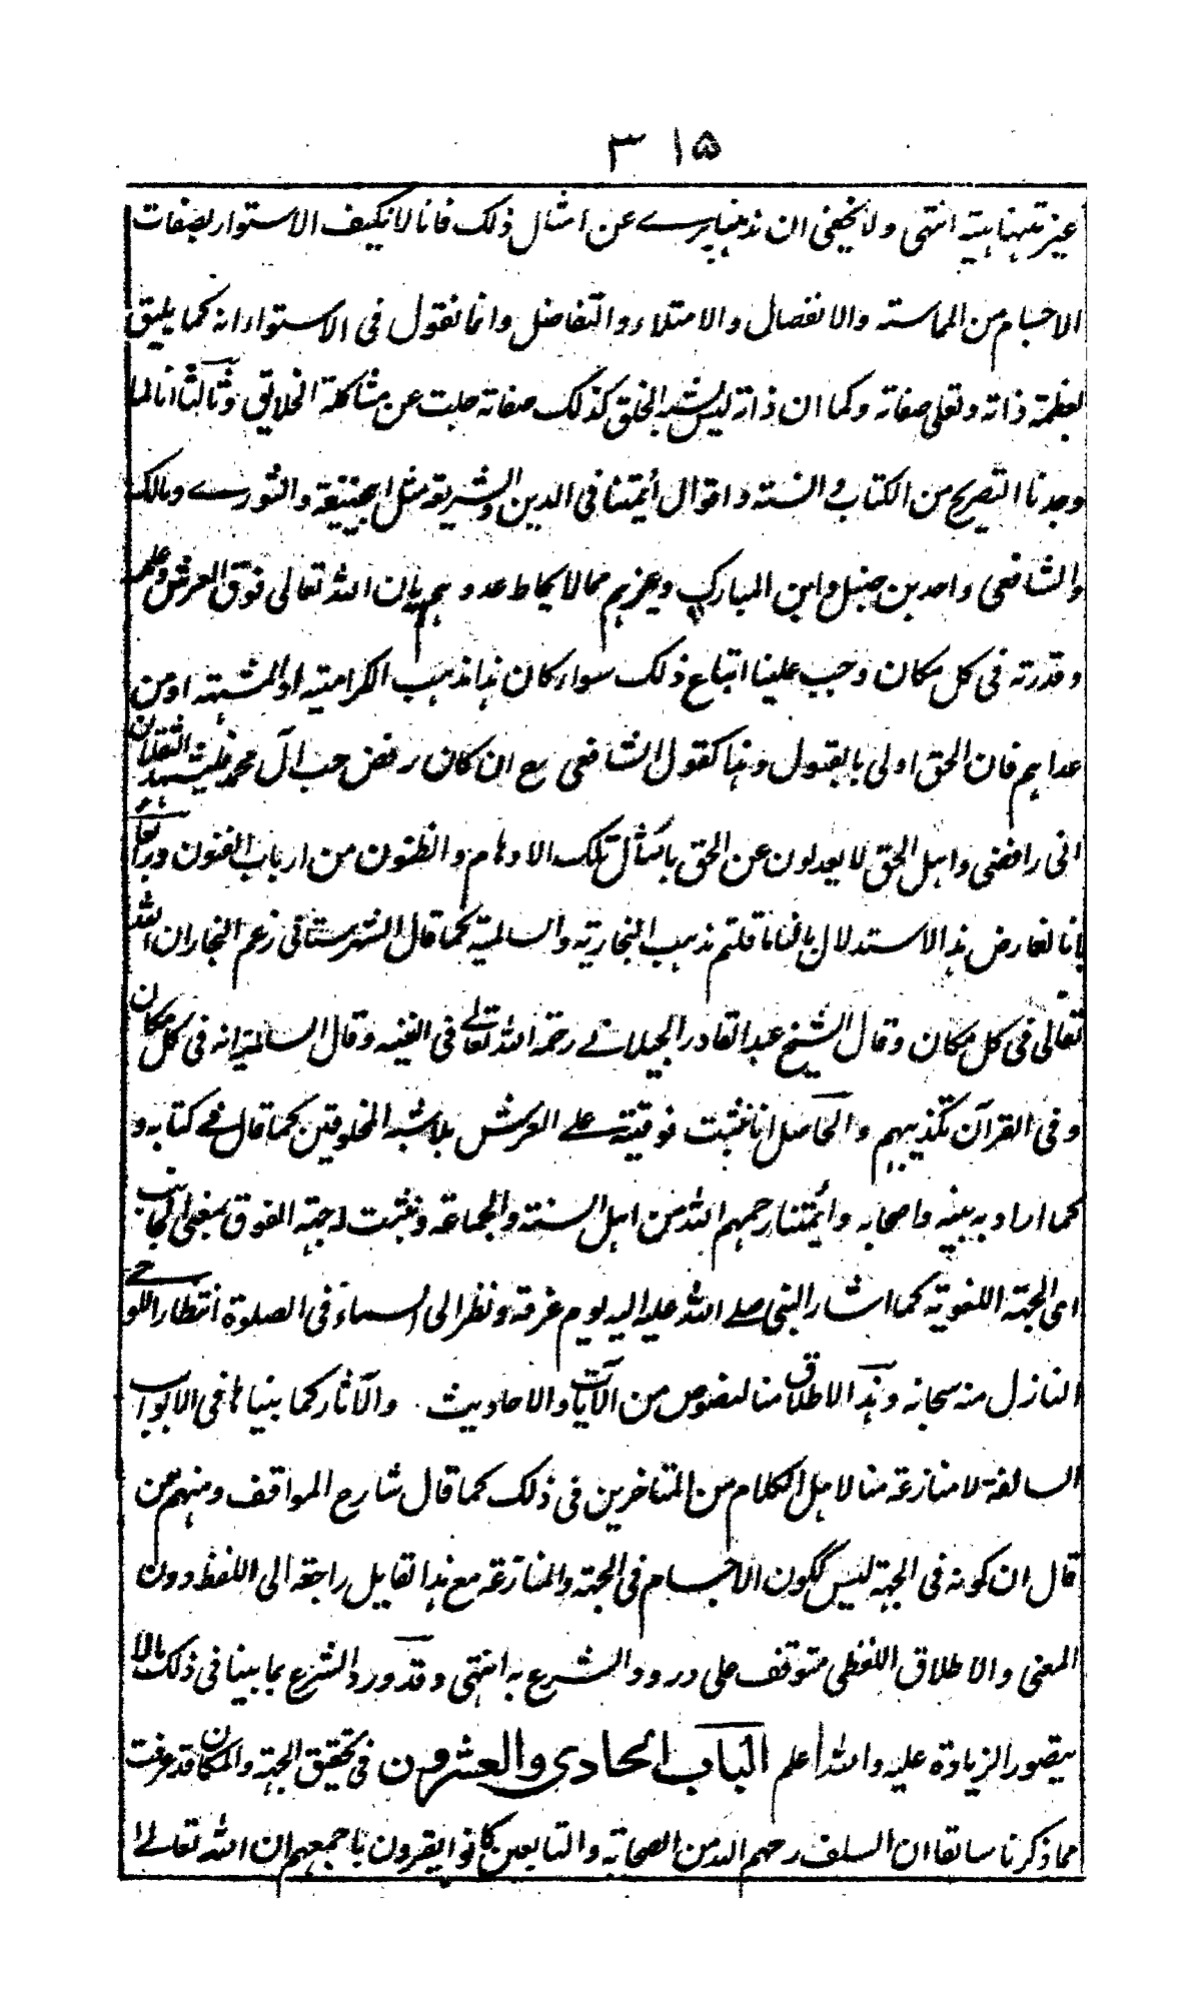 ۳۱۵
غیر متناهیة انتهى ولا یخفى ان مذهبنا برے عن امثال ذلک فانا لا نکیف الاستواء بصفات
الاجسام من المماسته والانفصال والامتلاء والتفاضل وانما نقول فی الاستواء انه کما یلیق
بعظمة ذاته وتعلى صفاته وکما ان ذاته لیس یشبه الخلق کذلک صفاته جلت عن مشاکلة الخلایق وثالثا انا لما
وجدنا التصریح من الکتاب والسنته واقوال أئمتنا فی الدین والشریعة مثل ابیحنیفة والثورے ومالک
والشافعی واحمد بن حنبل وابن المبارک وغیرهم مما لا یحاط عددهم بان الله تعالى فوق العرش وعلمه
وقدرته فی کل مکان وجب علینا اتباع ذلک سواء کان هذا مذهب الکرامیته او المشبهته او من
عداهم فان الحق اولى بالقبول وهذا کقول الشافعی ع ان کان رفض حب آل محمد فلیشهد الثقلان
انی رافضی واهل الحق لا یعدلون عن الحق بامثال تلک الاوهام والظنون من ارباب الفنون ورابعا
بانا نعارض هذا الاستدلال بالنا ما قلتم مذهب النجاریة والسالمیة کما قال الشهرستانی زعم النجار ان الله
تعالى فی کل مکان وقال الشیخ عبد القادر الجیلانے رحمة الله تعالى فی الغنیه وقال السالمیة انه فی کل مکان
وفی القرآن تکذیبهم والحاصل انا نثبت فوقیته علے العرش بلا شبه المخلوقین کما قال فے کتابه و
کما اراد به نبیه واصحابه وأئمتنا رحمهم الله من اهل السنته والجماعة ونثبت له جهته الفوق بمعنى الجانب
اى الجهة اللغویة کما اشار النبی صلے الله علیه الیه یوم عرفة ونظر الى السماء فی الصلوة انتظارا للوحے
النازل منه سبحانه وهذا الاطلاق منا لنصوص من الآیات والاحادیث والآثار کما بیناها فی الابواب
السالفة لا منازعة منا لاهل الکلام من المتاخرین فی ذلک کما قال شارح المواقف ومنهم من
قال ان کونه فی الجهة لیس ککون الاجسام فی الجهة والمنازعة مع هذا القایل راجعة الى اللفظ دون
المعنى والاطلاق اللفظی متوقف على ورود الشرع به انتهى وقد ورد الشرع بما بینا فی ذلک مالا
یتصور الزیادة علیه والله اعلم الباب الحادی والعشرون فی تحقیق الجهة والمکان قد عرفت
مما ذکرنا سابقا ان السلف رحمهم الله من الصحابة والتابعین کانوا یقرون باجمعهم ان الله تعالے